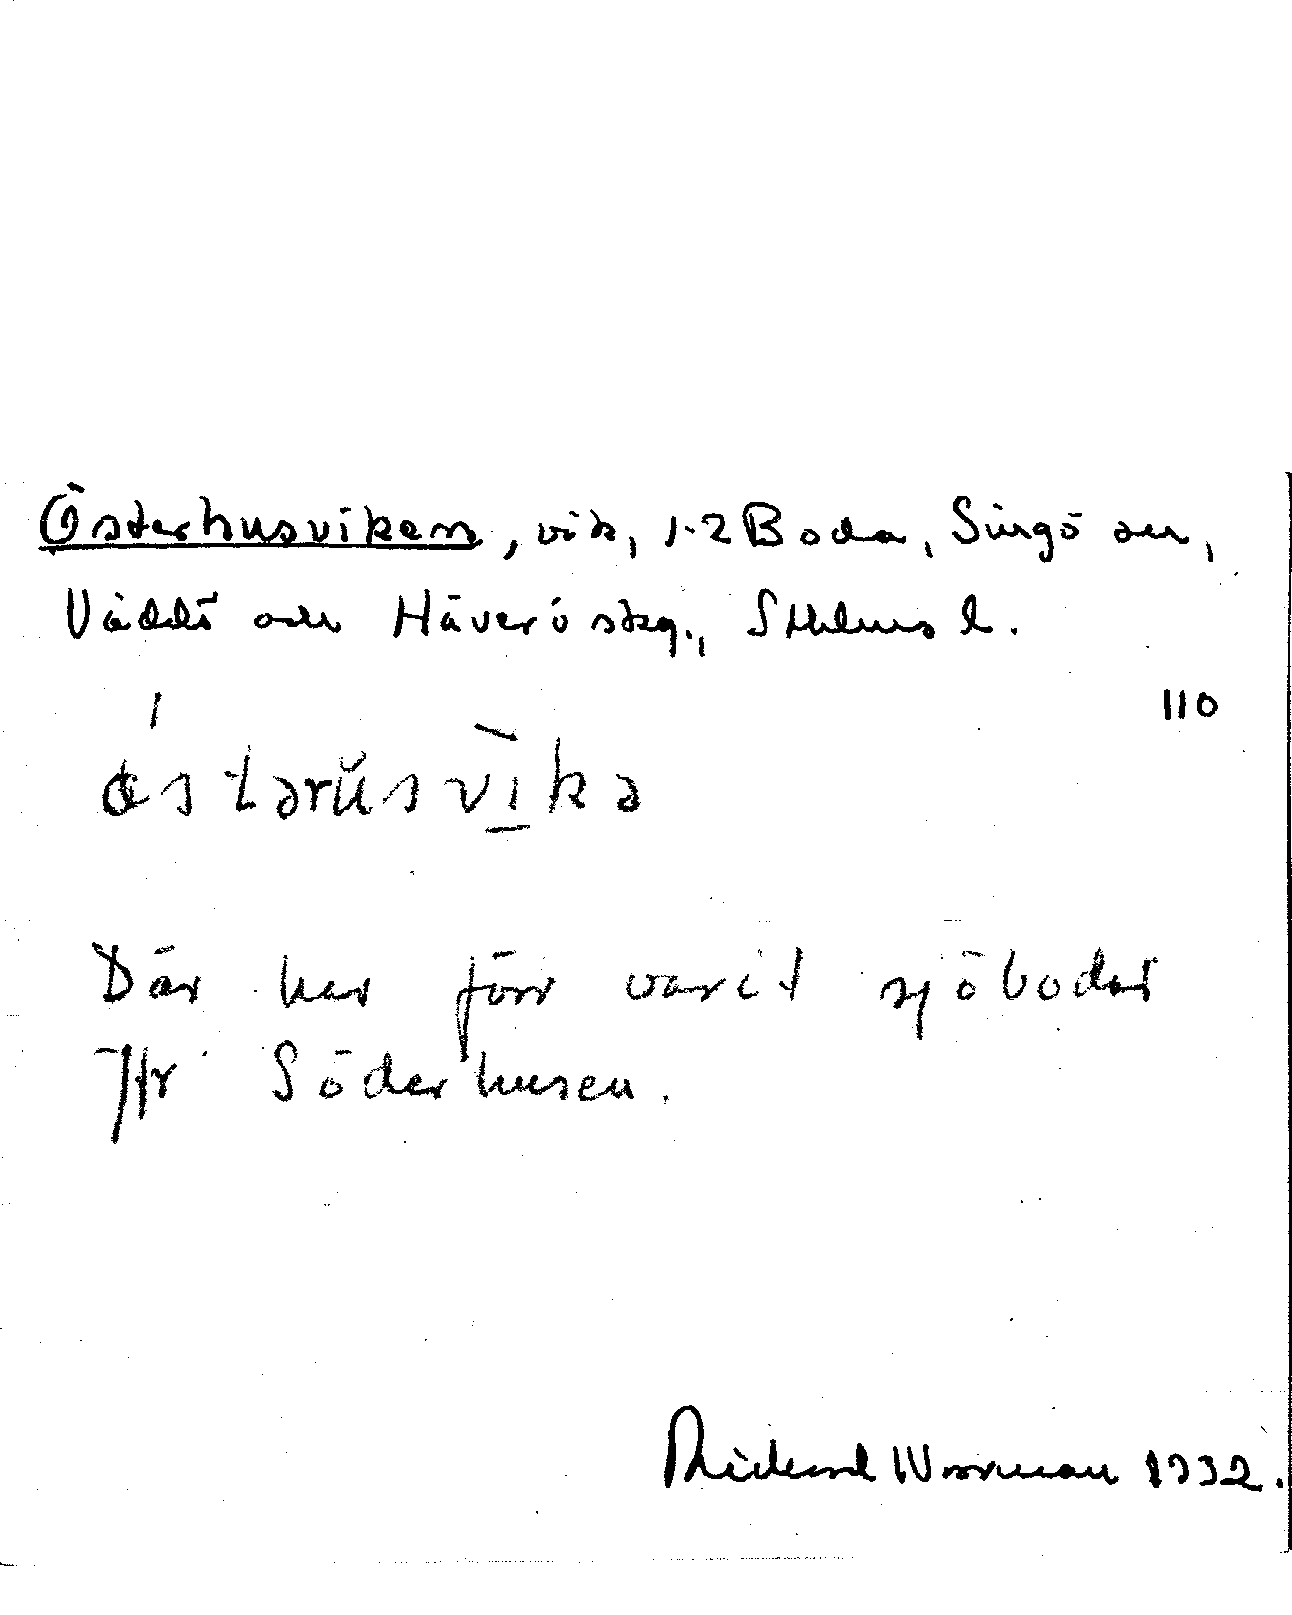 Österhusviken, vik, 1-2 Boda, Singö sn,
Väddö och Häverö skg., Sthlms l.
110
ǿstərŭsvìkə
Där har förr varit sjöbodar
Jfr Söderhusen.
Rickard Wornman 1932.